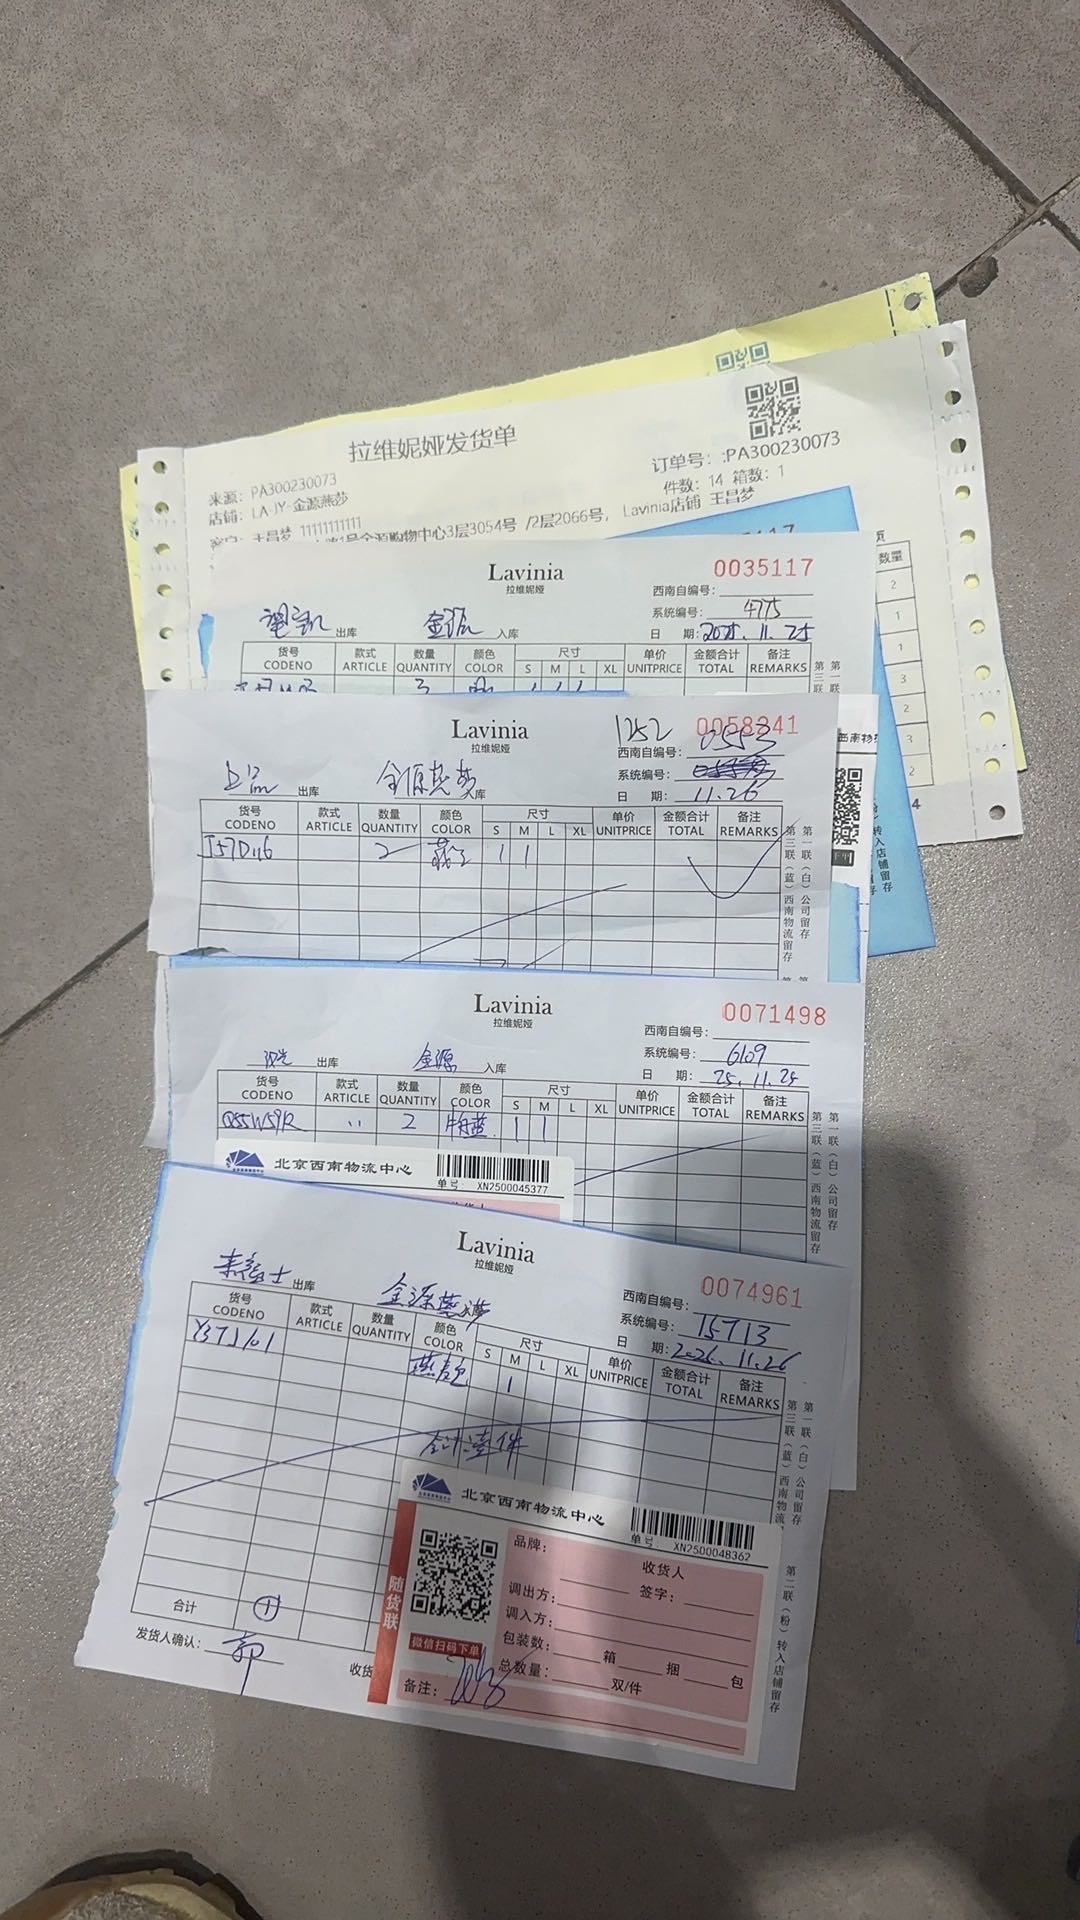 拉维妮娅发货单
来源: PA300230073
店铺: LA-JY-金源燕莎
王昌梦 11111111111
1号金源购物中心3层3054号 /2层2066号, Lavinia店铺 王昌梦
订单号: :PA300230073
件数: 14 箱数: 1
数量
2
1
1
3
2
3
2
4
Lavinia
拉维妮娅
0035117
西南自编号:
系统编号: 4775
出库 金源 入库
日 期: 2025.11.25
货号 款式 数量 颜色 尺寸 单价 金额合计 备注
CODENO ARTICLE QUANTITY COLOR S M L XL UNITPRICE TOTAL REMARKS
3
Lavinia
拉维妮娅
0058241
1252
西南自编号: 0553
系统编号:
出库 金源燕莎 入库
日 期: 11.26
货号 款式 数量 颜色 尺寸 单价 金额合计 备注
CODENO ARTICLE QUANTITY COLOR S M L XL UNITPRICE TOTAL REMARKS
2 1 1
第一联(白)公司留存
第三联(蓝)西南物流留存
转入店铺留存
Lavinia
拉维妮娅
0071498
西南自编号:
系统编号: 6109
出库 金源 入库
日 期: 25.11.25
货号 款式 数量 颜色 尺寸 单价 金额合计 备注
CODENO ARTICLE QUANTITY COLOR S M L XL UNITPRICE TOTAL REMARKS
Q55W59R 2 1 1
第一联(白)公司留存
第三联(蓝)西南物流留存
北京西南物流中心
单号: XN2500045377
Lavinia
拉维妮娅
0074961
西南自编号:
系统编号: 15713
出库 金源燕莎
日 期: 2026.11.26
货号 款式 数量 颜色 尺寸 单价 金额合计 备注
CODENO ARTICLE QUANTITY COLOR S M L XL UNITPRICE TOTAL REMARKS
Y37J101 燕麦色 1
合计壹件
第一联(白)公司留存
第三联(蓝)西南物流
第二联(粉)转入店铺留存
合计 1
发货人确认: 郭
收货
北京西南物流中心
单号: XN2500048362
随货联
微信扫码下单
品牌:
收货人
调出方: 签字:
调入方:
包装数: 箱 捆 包
总数量: 双/件
备注: